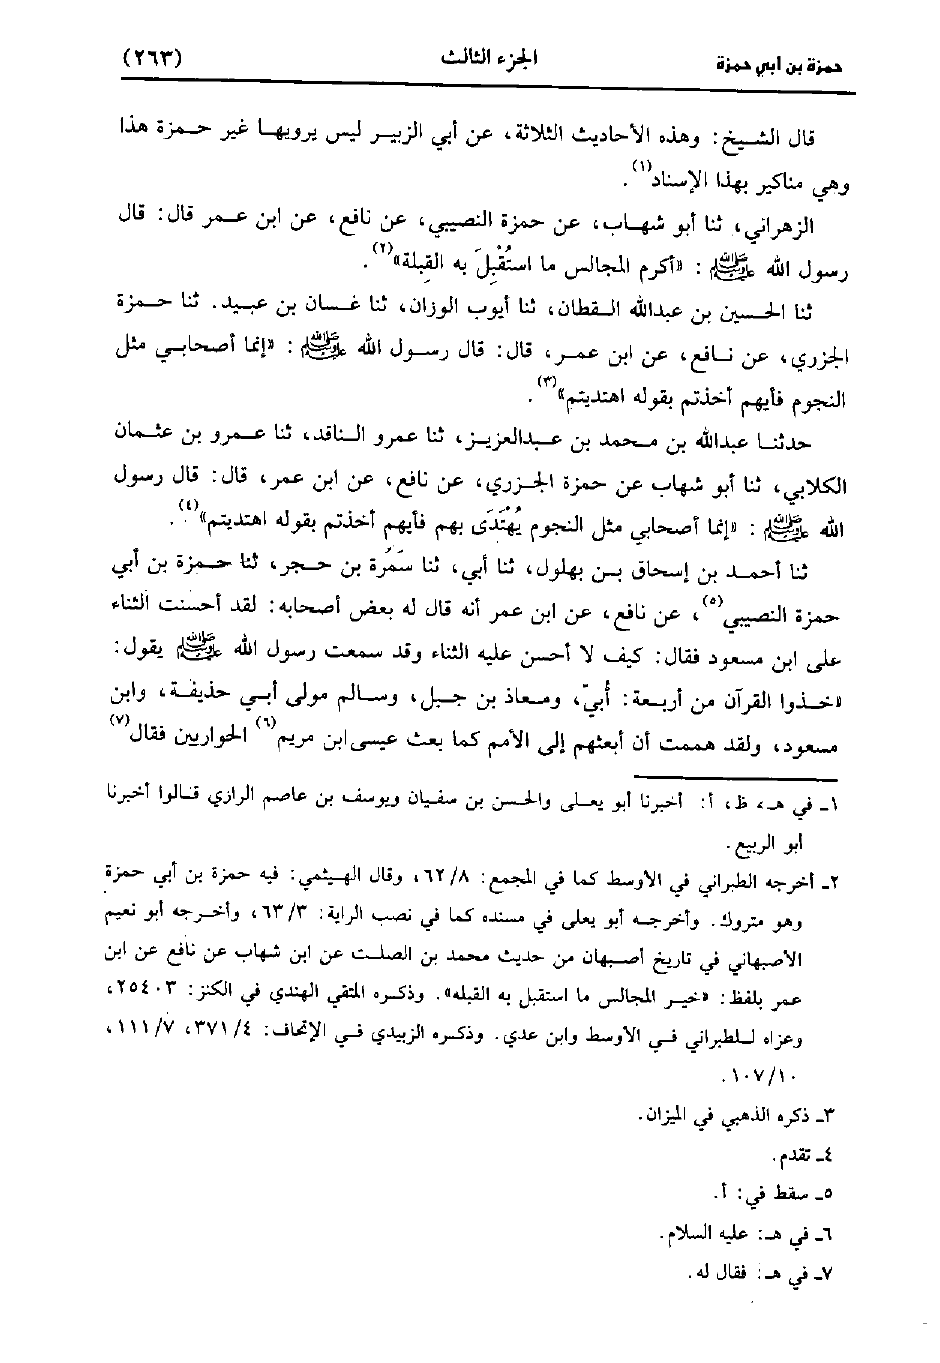 حمزة بن أبي حمزة الجزء الثالث (٢٦٣)
قال الشيخ: وهذه الأحاديث الثلاثة، عن أبي الزبير ليس يرويها غير حمزة هذا
وهي مناكير بهذا الإسناد(١).
الزهراني، ثنا أبو شهاب، عن حمزة النصيبي، عن نافع، عن ابن عمر قال: قال
رسول الله ﷺ: «أكرم المجالس ما استُقْبِلَ به القبلة»(٢).
ثنا الحسين بن عبدالله القطان، ثنا أيوب الوزان، ثنا غسان بن عبيد. ثنا حمزة
الجزري، عن نافع، عن ابن عمر، قال: قال رسول الله ﷺ: «إنما أصحابي مثل
النجوم فأيهم أخذتم بقوله اهتديتم»(٣).
حدثنا عبدالله بن محمد بن عبدالعزيز، ثنا عمرو الناقد، ثنا عمرو بن عثمان
الكلابي، ثنا أبو شهاب عن حمزة الجزري، عن نافع، عن ابن عمر، قال: قال رسول
الله ﷺ: «إنما أصحابي مثل النجوم يُهْتَدَى بهم فأيهم أخذتم بقوله اهتديتم»(٤).
ثنا أحمد بن إسحاق بن بهلول، ثنا أبي، ثنا سَمُرة بن حجر، ثنا حمزة بن أبي
حمزة النصيبي(٥)، عن نافع، عن ابن عمر أنه قال له بعض أصحابه: لقد أحسنت الثناء
على ابن مسعود فقال: كيف لا أحسن عليه الثناء وقد سمعت رسول الله ﷺ يقول:
«خذوا القرآن من أربعة: أُبيّ، ومعاذ بن جبل، وسالم مولى أبي حذيفة، وابن
مسعود، ولقد هممت أن أبعثهم إلى الأمم كما بعث عيسى ابن مريم(٦) الحواريين فقال(٧)
١ـ في هـ، ظ، أ: أخبرنا أبو يعلى والحسن بن سفيان ويوسف بن عاصم الرازي قالوا أخبرنا
أبو الربيع.
٢ـ أخرجه الطبراني في الأوسط كما في المجمع: ٦٢/٨، وقال الهيثمي: فيه حمزة بن أبي حمزة
وهو متروك. وأخرجه أبو يعلى في مسنده كما في نصب الراية: ٦٣/٣، وأخرجه أبو نعيم
الأصبهاني في تاريخ أصبهان من حديث محمد بن الصلت عن ابن شهاب عن نافع عن ابن
عمر بلفظ: «خير المجالس ما استقبل به القبله». وذكره المتقي الهندي في الكنز: ٢٥٤٠٣،
وعزاه للطبراني في الأوسط وابن عدي. وذكره الزبيدي في الإتحاف: ٣٧١/٤، ١١١/٧،
١٠٧/١٠.
٣ـ ذكره الذهبي في الميزان.
٤ـ تقدم.
٥ـ سقط في: أ.
٦ـ في هـ: عليه السلام.
٧ـ في هـ: فقال له.